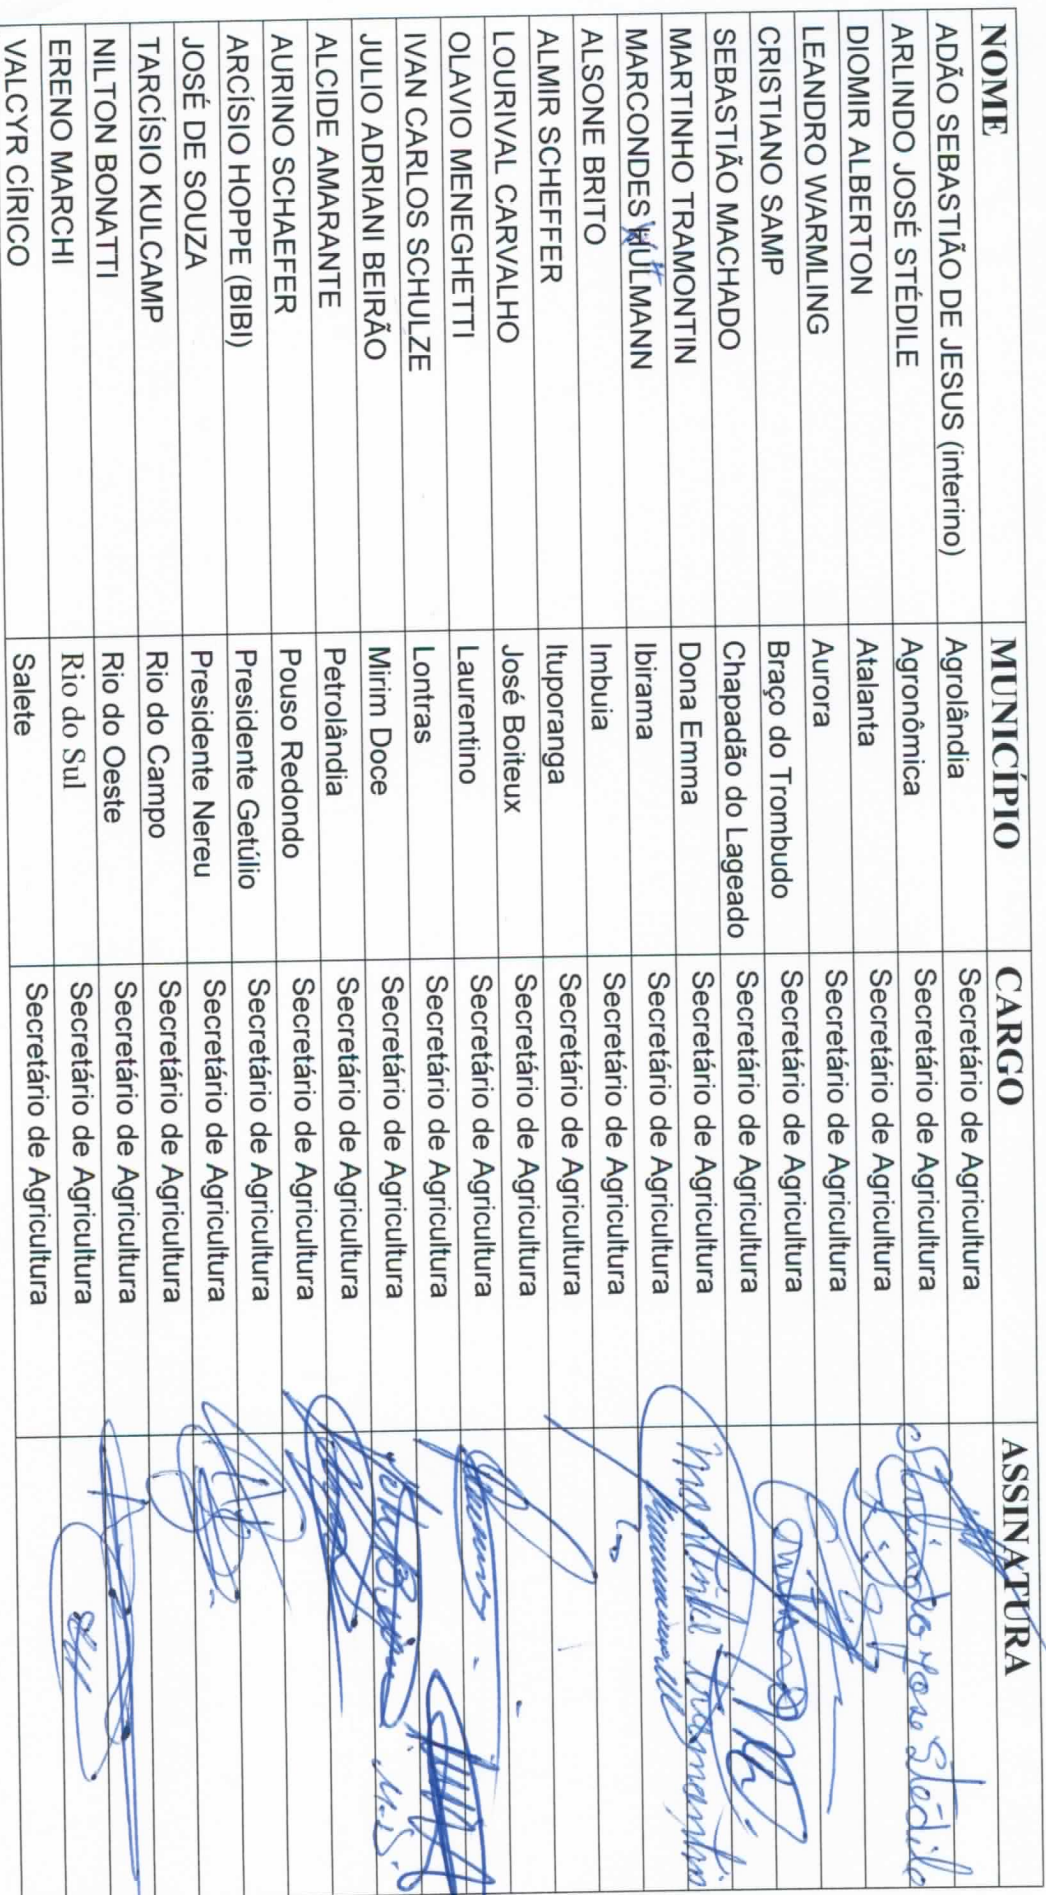 NOME MUNICÍPIO CARGO ASSINATURA
ADÃO SEBASTIÃO DE JESUS (interino) Agrolândia Secretário de Agricultura
ARLINDO JOSÉ STÉDILE Agronômica Secretário de Agricultura Arlindo Jose Stédile
DIOMIR ALBERTON Atalanta Secretário de Agricultura
LEANDRO WARMLING Aurora Secretário de Agricultura
CRISTIANO SAMP Braço do Trombudo Secretário de Agricultura
SEBASTIÃO MACHADO Chapadão do Lageado Secretário de Agricultura
MARTINHO TRAMONTIN Dona Emma Secretário de Agricultura Martinho Tramontin
MARCONDES HULMANN Ibirama Secretário de Agricultura
ALSONE BRITO Imbuia Secretário de Agricultura
ALMIR SCHEFFER Ituporanga Secretário de Agricultura
LOURIVAL CARVALHO José Boiteux Secretário de Agricultura
OLAVIO MENEGHETTI Laurentino Secretário de Agricultura
IVAN CARLOS SCHULZE Lontras Secretário de Agricultura
JULIO ADRIANI BEIRÃO Mirim Doce Secretário de Agricultura
ALCIDE AMARANTE Petrolândia Secretário de Agricultura
AURINO SCHAEFER Pouso Redondo Secretário de Agricultura
ARCÍSIO HOPPE (BIBI) Presidente Getúlio Secretário de Agricultura
JOSÉ DE SOUZA Presidente Nereu Secretário de Agricultura
TARCÍSIO KULCAMP Rio do Campo Secretário de Agricultura
NILTON BONATTI Rio do Oeste Secretário de Agricultura
ERENO MARCHI Rio do Sul Secretário de Agricultura
VALCYR CÍRICO Salete Secretário de Agricultura